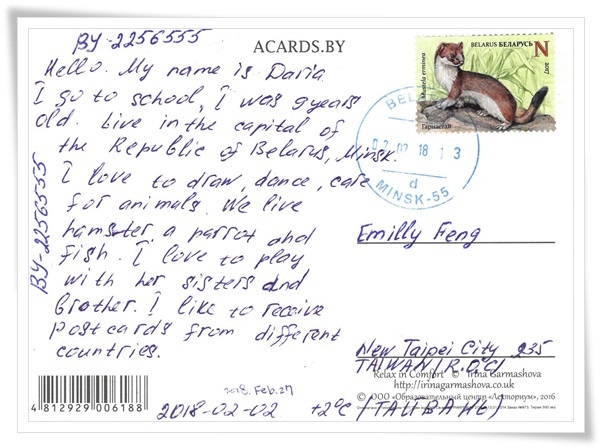 BY-2256555
ACARDS.BY
BELARUS БЕЛАРУСЬ N
2017
Mustela erminea
Гарнастай
Hello. My name is Daria
I go to school, I was 9 years
old. Live in the capital of
the Republic of Belarus, Minsk.
I love to draw, dance, care
for animals. We live
hamster a parrot and
fish. I love to play
with her sisters and
brother. I like to receive
postcards from different
countries.
BY-2256555
02 02 18 13
d
MINSK-55
Emilly Feng
New Taipei City 235
TAIWAN (R.O.C)
Relax in Comfort © Irina Garmashova
http://irinagarmashova.co.uk
© ООО «Образовательный центр «Аскториум», 2016
(ТАЙВАНЬ)
2018.Feb.27
4 812929 006188
2018-02-02 +2°C